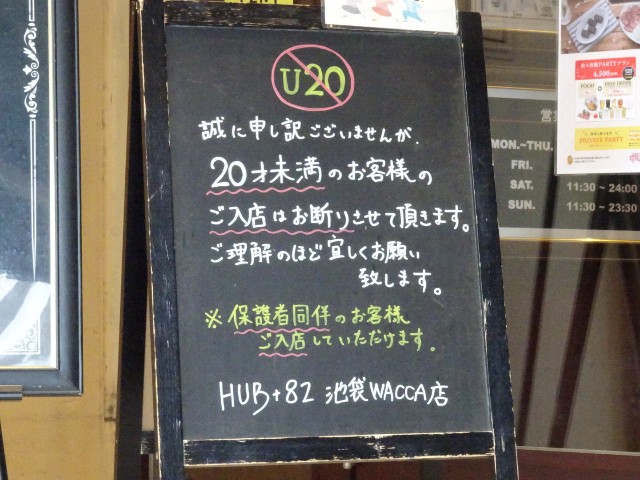 U20
誠に申し訳ございませんが、
20才未満のお客様の
ご入店はお断りさせて頂きます。
ご理解のほど宜しくお願い
致します。
※保護者同伴のお客様
ご入店していただけます。
HUB+82 池袋WACCA店
PARTYプラン
4,500
FOOD
PRIVATE PARTY
営
MON.~THU.
FRI.
SAT. 11:30~24:00
SUN. 11:30~23:30